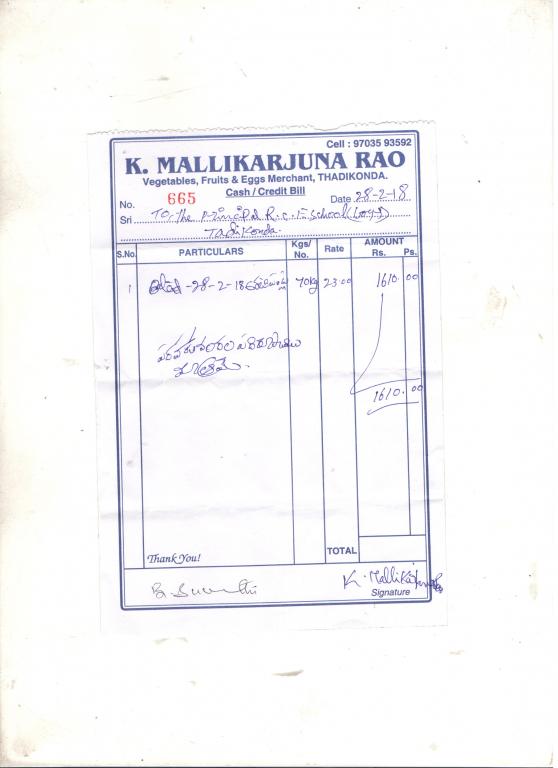 Cell : 97035 93592
K. MALLIKARJUNA RAO
Vegetables, Fruits & Eggs Merchant, THADIKONDA.
Cash / Credit Bill
No. 665 Date 28-2-18
Sri TO The Principal R.C.E School (Boys)
Tadikonda.
S.No. PARTICULARS Kgs/ No. Rate AMOUNT Rs. Ps.
1 28-2-18 70kg 23.00 1610.00
1610.00
Thank You!
TOTAL
K. Mallikarjuna Rao
Signature